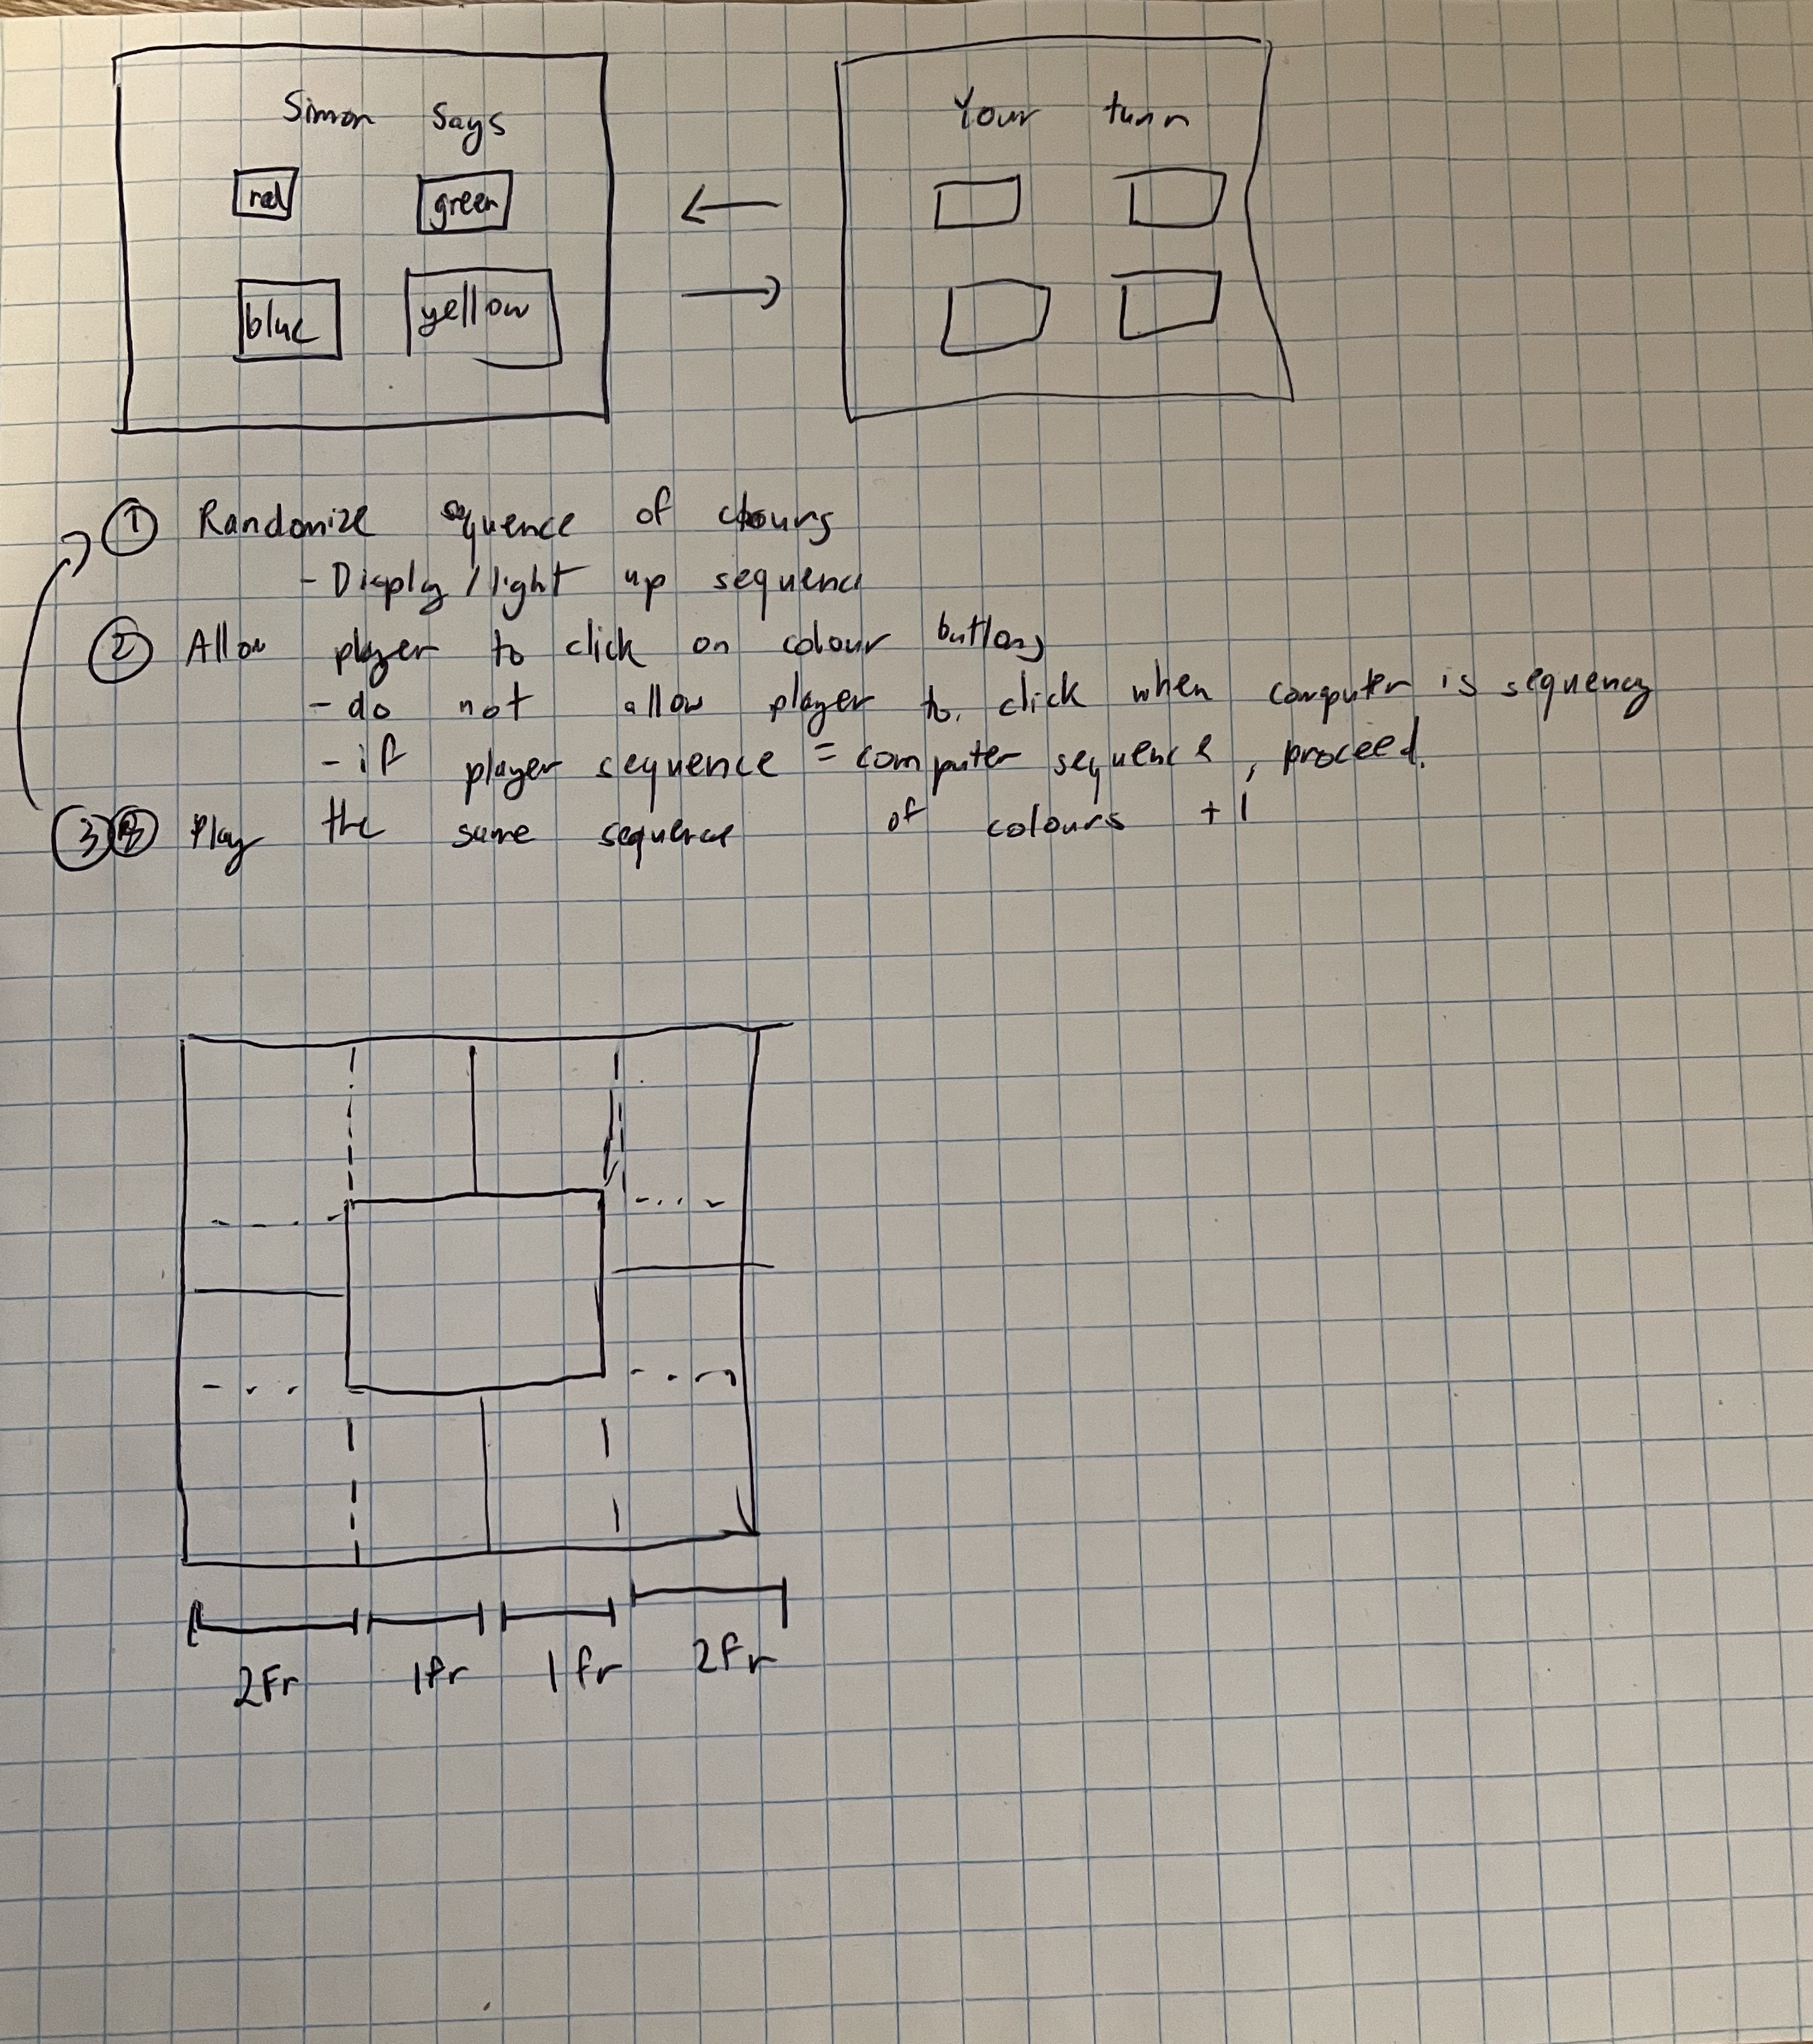 Simon Says
Your turn
red
green
blue
yellow
① Randomize sequence of colours
- Display / light up sequence
② Allow player to click on colour buttons
- do not allow player to click when computer is sequency
- if player sequence = computer sequence, proceed.
③ Play the same sequence of colours +1
2Fr 1fr 1fr 2Fr